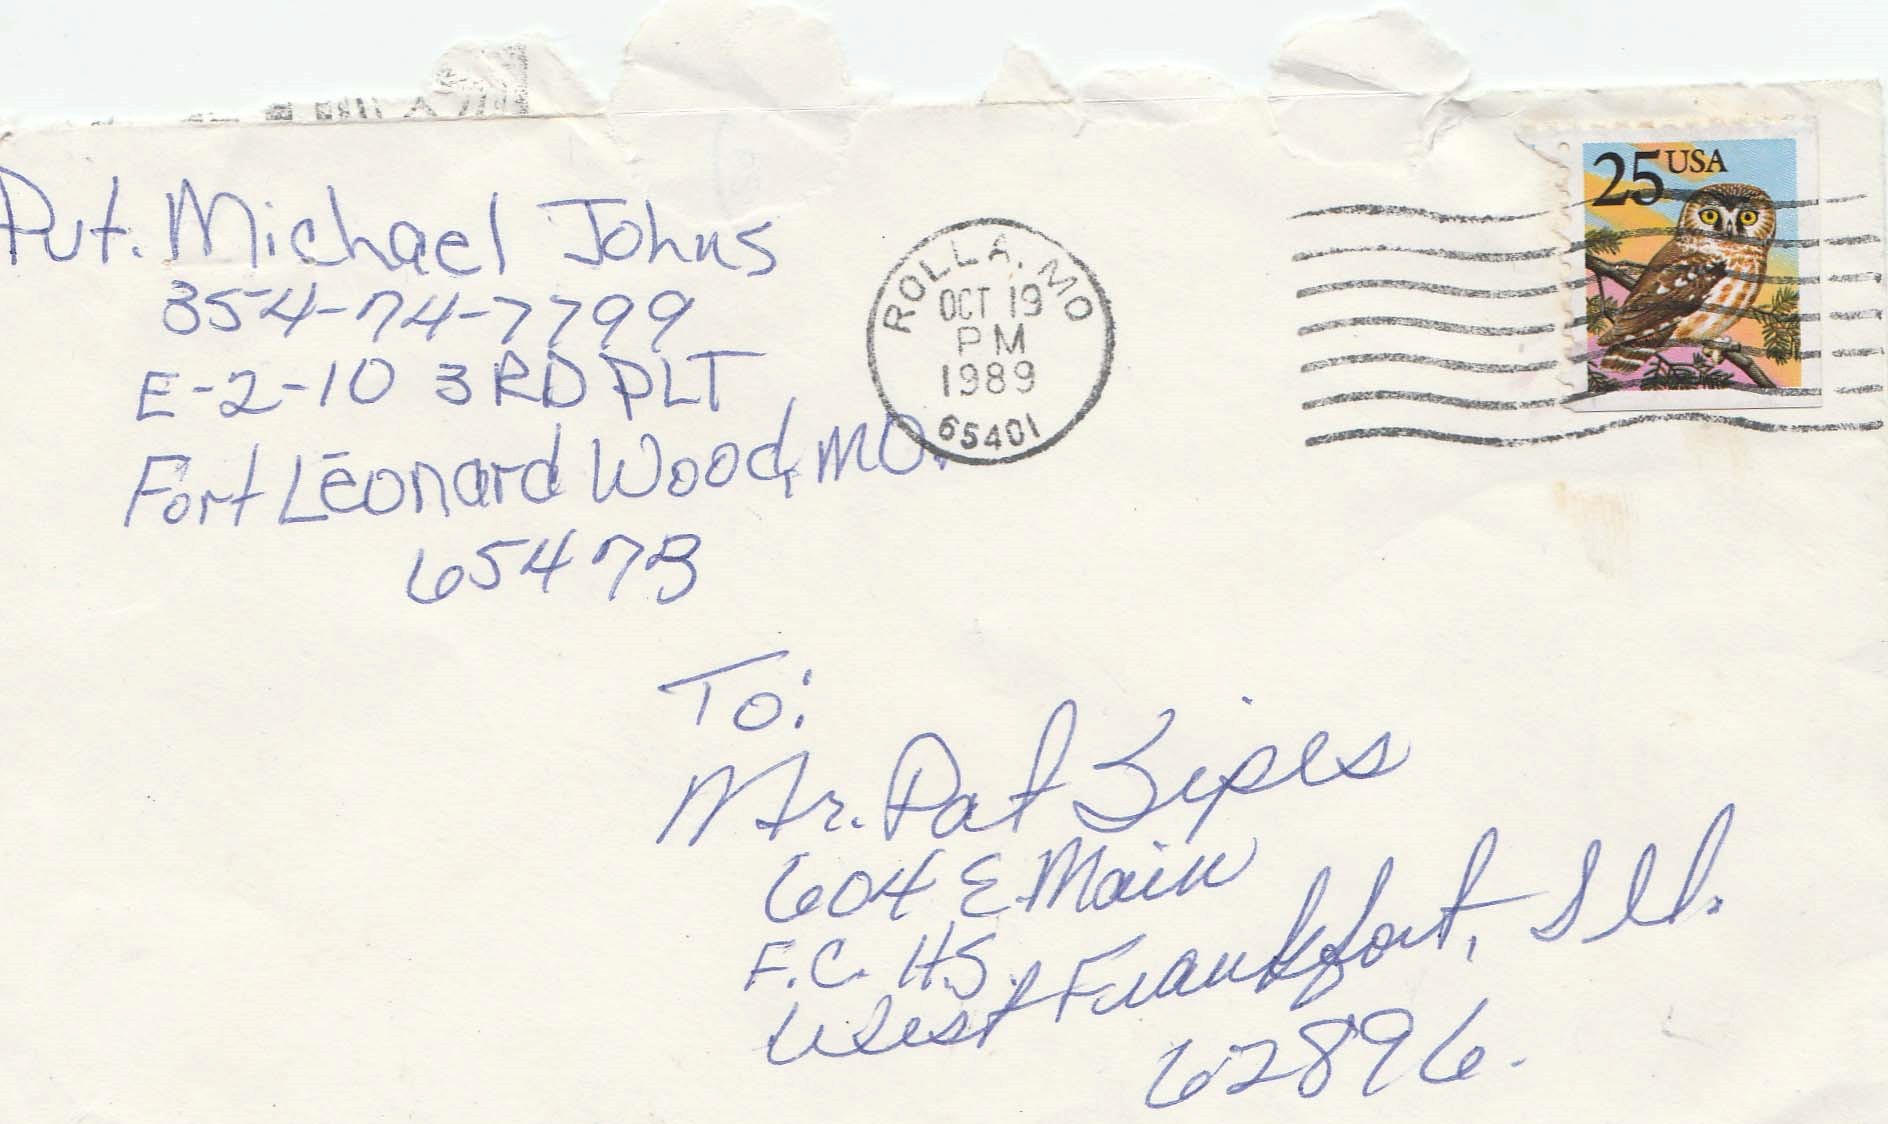 Pvt. Michael Johns
354-74-7799
E-2-10 3RD PLT
Fort Leonard Wood, MO.
65473
ROLLA, MO
OCT 19
PM
1989
65401
25 USA
To:
Mr. Pat Sipes
604 E. Main
F.C. H.S.
West Frankfort, Ill.
62896.